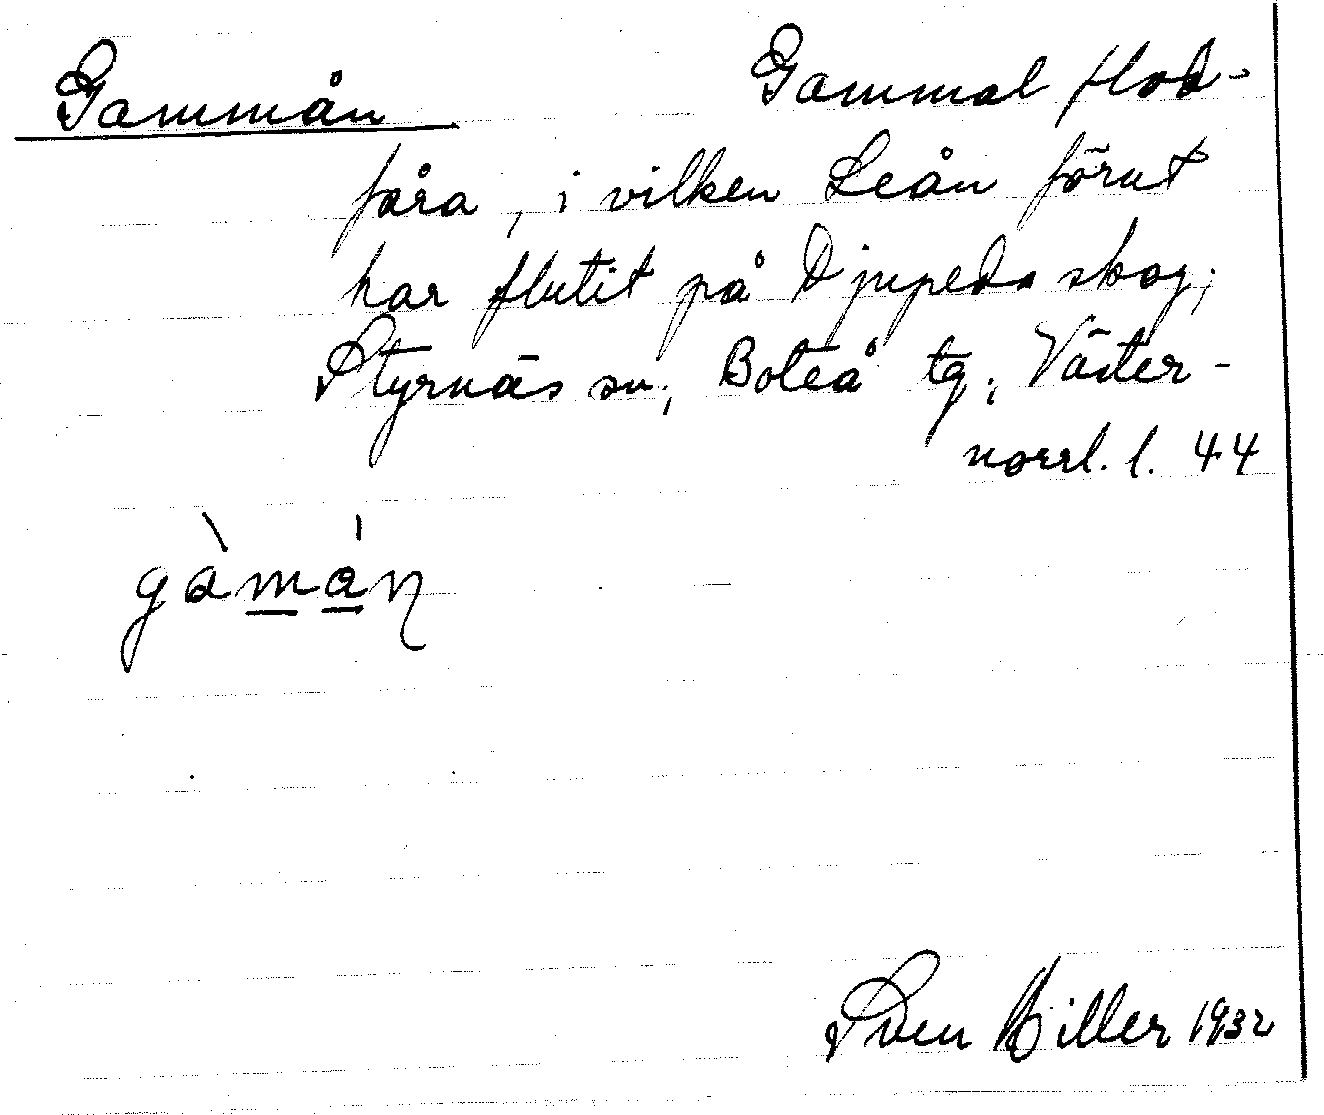 Gammån Gammal flod-
fåra, i vilken Leån förut
har flutit på Djupeda skog;
Styrnäs sn, Boteå tg, Väster-
norrl. l. 44
gàmán
Sven Hiller 1932